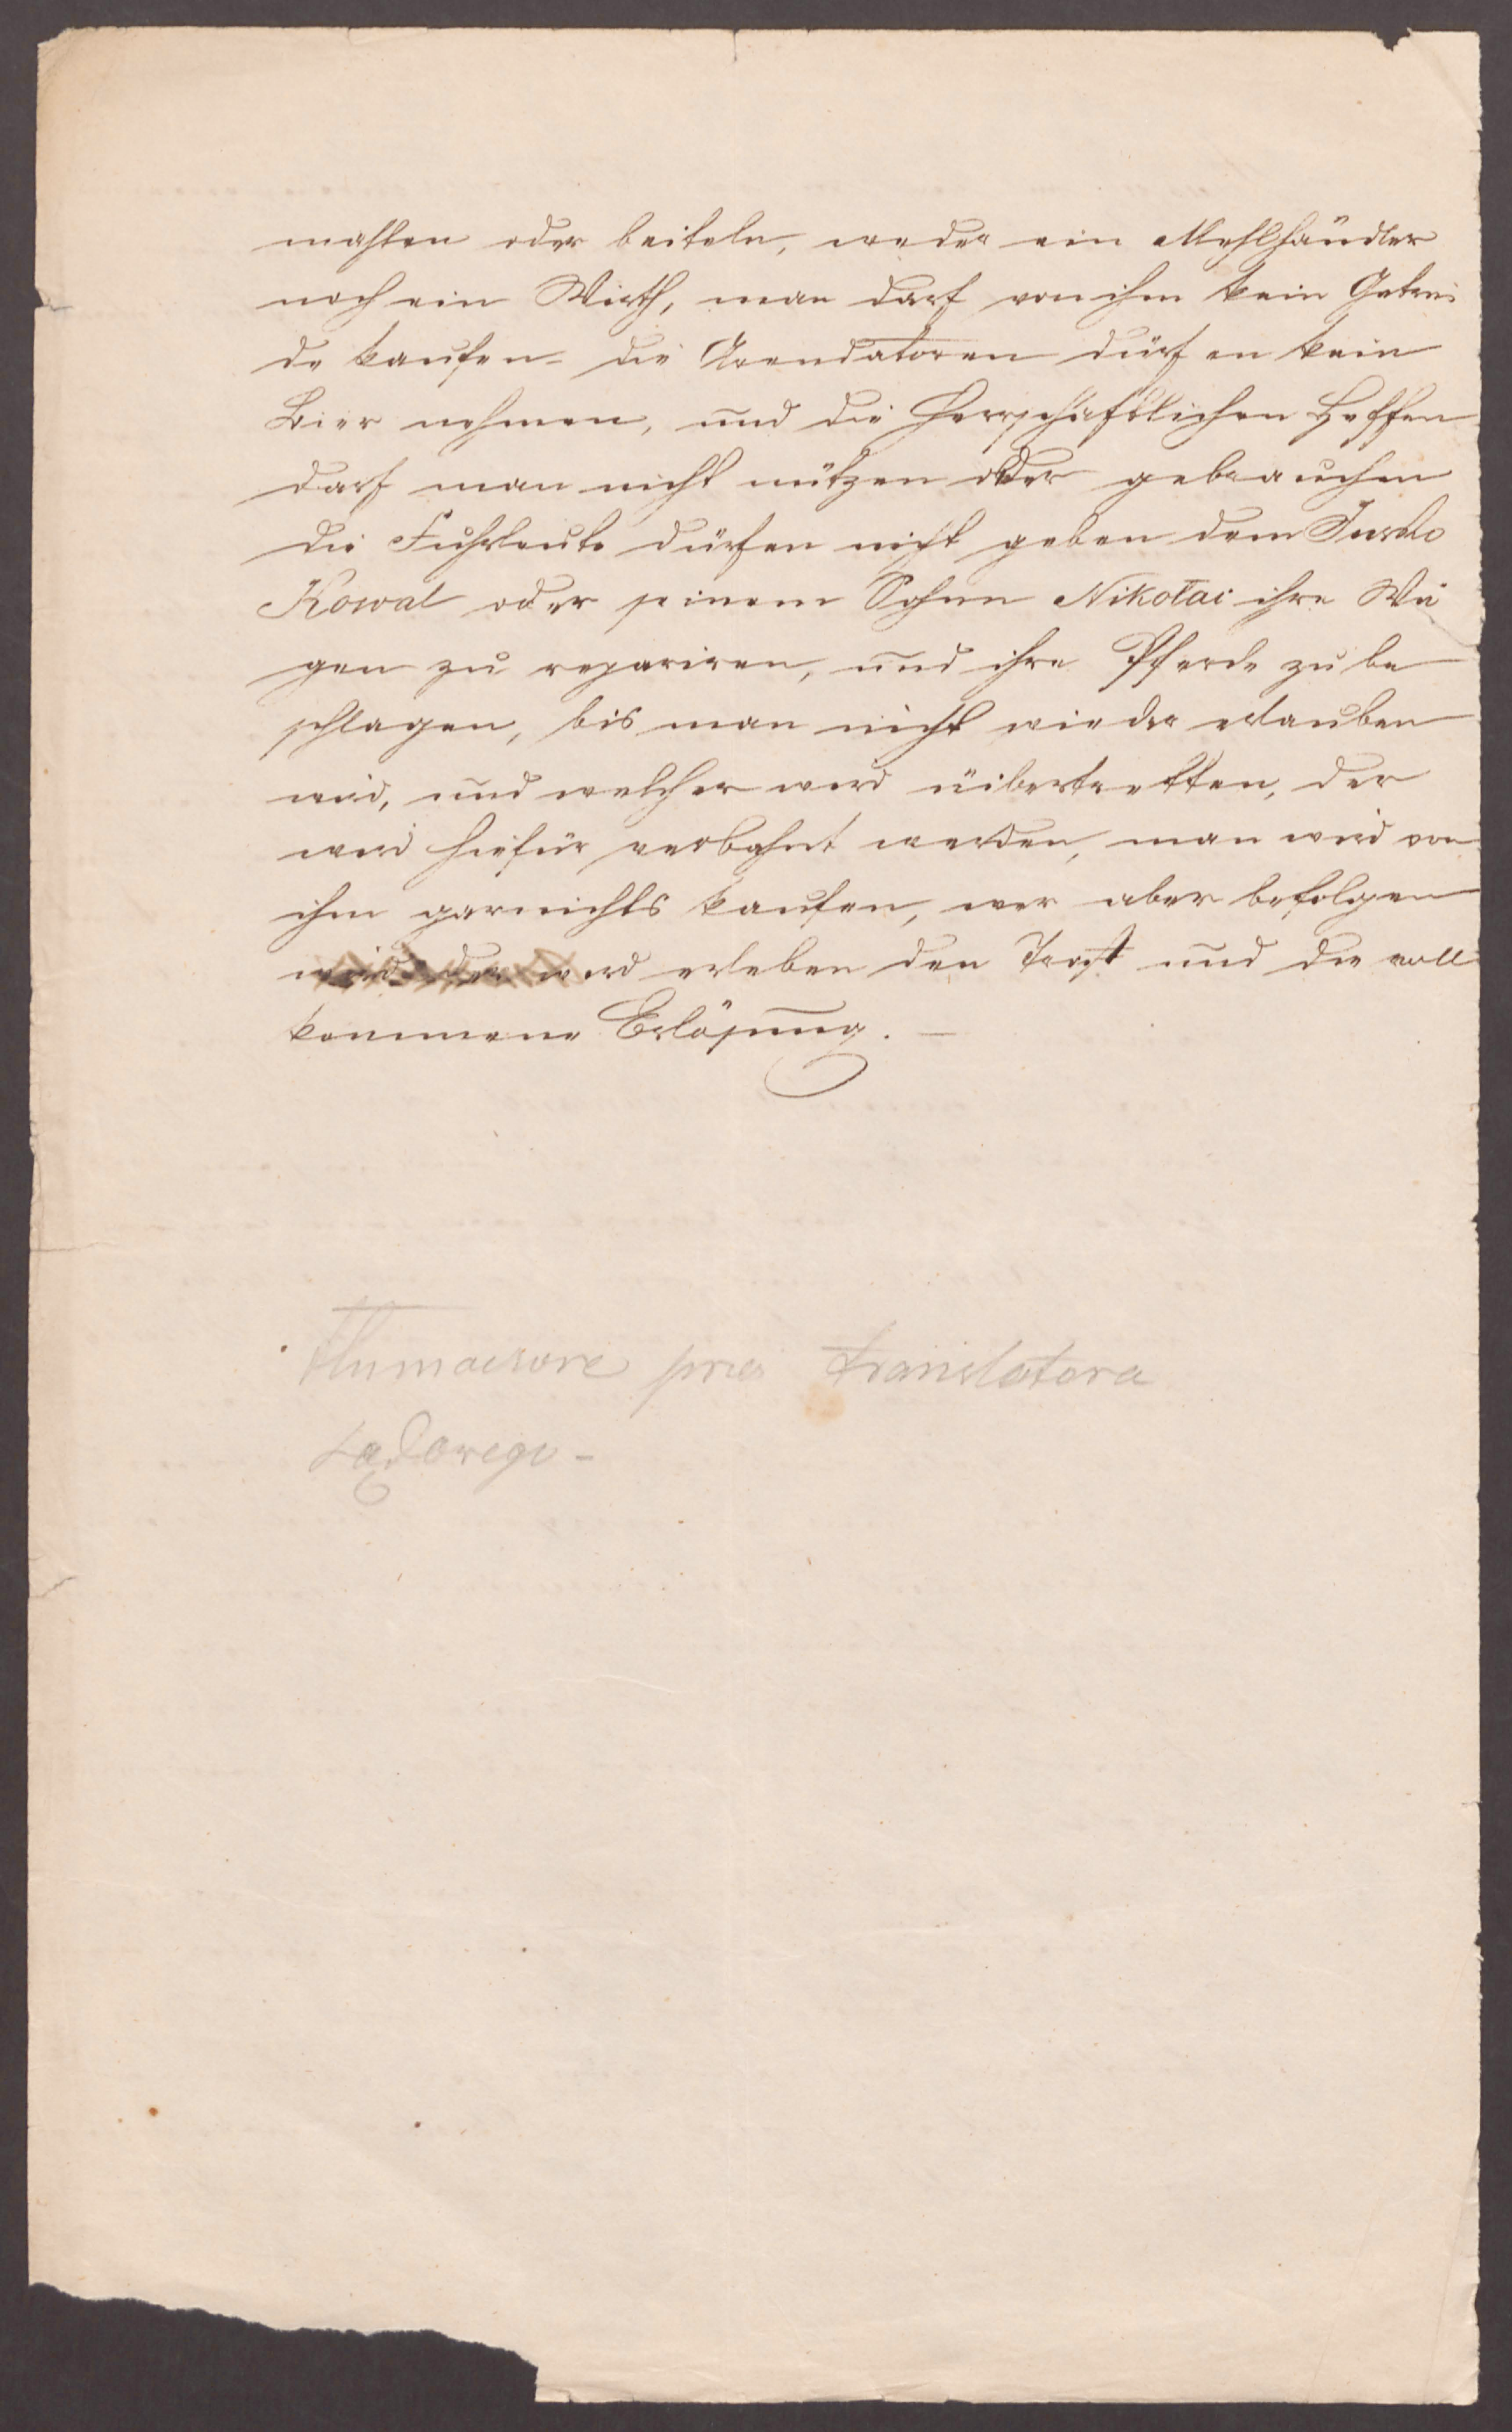 mahlen oder beiteln, weder ein Mehlhändler
noch ein Wirth, man darf von ihm kein Getrei
de kaufen - die Arendatoren dürfen kein
Bier nehmen, und die Herrschäftlichen Heffen
darf man nicht nützen oder gebrauchen
die Fuhrleute dürfen nicht geben dem Jurko
Kowal oder seinem Sohne Nikołai ihre Wä
gen zu repariren, und ihre Pferde zu be
schlagen, bis man nicht wieder erlauben
wird, und welcher wird übertretten, der
wird hiefür verbahnt werden, man wird von
ihm garnichts kaufen, wer aber befolgen
wird der wird erleben den Trost und die voll
kommene Erlösung. —
tłumaczone przez translatora
sądowego -